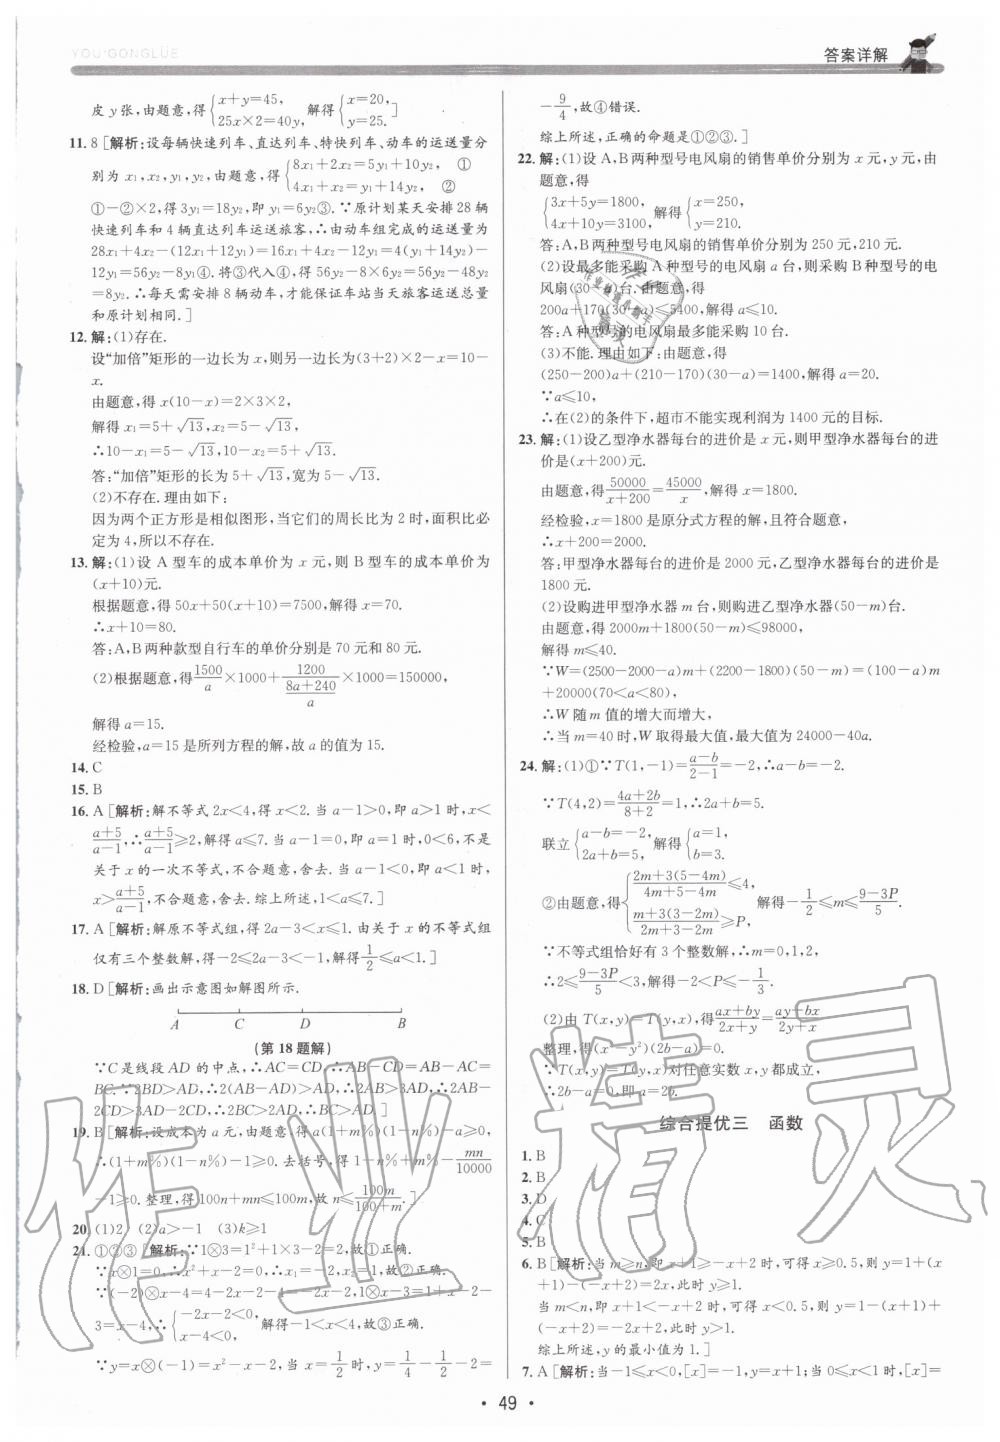 YOU'GONGLÜE
答案详解
皮y张,由题意,得{x+y=45, 25x×2=40y, 解得{x=20, y=25.]
11. 8 [解析:设每辆快速列车、直达列车、特快列车、动车的运送量分
别为x₁,x₂,y₁,y₂,由题意,得{8x₁+2x₂=5y₁+10y₂, ① 4x₁+x₂=y₁+14y₂, ②
①-②×2,得3y₁=18y₂,即y₁=6y₂③.∵原计划某天安排28辆
快速列车和4辆直达列车运送旅客,∴由动车组完成的运送量为
28x₁+4x₂-(12x₁+12y₁)=16x₁+4x₂-12y₁=4(y₁+14y₂)-
12y₁=56y₂-8y₁④.将③代入④,得56y₂-8×6y₂=56y₂-48y₂
=8y₂.∴每天需安排8辆动车,才能保证车站当天旅客运送总量
和原计划相同.]
12. 解:(1)存在.
设“加倍”矩形的一边长为x,则另一边长为(3+2)×2-x=10-
x.
由题意,得x(10-x)=2×3×2,
解得x₁=5+√13,x₂=5-√13,
∴10-x₁=5-√13,10-x₂=5+√13.
答:“加倍”矩形的长为5+√13,宽为5-√13.
(2)不存在.理由如下:
因为两个正方形是相似图形,当它们的周长比为2时,面积比必
定为4,所以不存在.
13. 解:(1)设A型车的成本单价为x元,则B型车的成本单价为
(x+10)元.
根据题意,得50x+50(x+10)=7500,解得x=70.
∴x+10=80.
答:A,B两种款型自行车的单价分别是70元和80元.
(2)根据题意,得1500/a×1000+1200/((8a+240)/a)×1000=150000,
解得a=15.
经检验,a=15是所列方程的解,故a的值为15.
14. C
15. B
16. A [解析:解不等式2x<4,得x<2.当a-1>0,即a>1时,x<
(a+5)/(a-1),∴(a+5)/(a-1)≥2,解得a≤7.当a-1=0,即a=1时,0<6,不是
关于x的一次不等式,不合题意,舍去.当a-1<0,即a<1时,
x>(a+5)/(a-1),不合题意,舍去.综上所述,1<a≤7.]
17. A [解析:解原不等式组,得2a-3<x≤1.由关于x的不等式组
仅有三个整数解,得-2≤2a-3<-1,解得1/2≤a<1.]
18. D [解析:画出示意图如解图所示.
A C D B
(第18题解)
∵C是线段AD的中点,∴AC=CD,∴AB-CD=AB-AC=
BC.∵2BD>AD,∴2(AB-AD)>AD,∴2AB>3AD,∴2AB-
2CD>3AD-2CD,∴2BC>2AD,∴BC>AD.]
19. B [解析:设成本为a元,由题意,得a(1+m%)(1-n%)-a≥0,
∴(1+m%)(1-n%)-1≥0.去括号,得1-n%+m%-mn/10000
-1≥0.整理,得100n+mn≤100m,故n≤100m/(100+m).]
20. (1)2 (2)a>-1 (3)k≥1
21. ①②③ [解析:∵1⊗3=1²+1×3-2=2,故①正确.
∵x⊗1=0,∴x²+x-2=0,∴x₁=-2,x₂=1,故②正确.
∵(-2)⊗x-4=4-2x-2-4=-2x-2,1⊗x-3=1+x-2-
3=x-4,∴{-2x-2<0, x-4<0, 解得-1<x<4,故③正确.
∵y=x⊗(-1)=x²-x-2,当x=1/2时,y=1/4-1/2-2=
-9/4,故④错误.
综上所述,正确的命题是①②③.]
22. 解:(1)设A,B两种型号电风扇的销售单价分别为x元,y元,由
题意,得
{3x+5y=1800, 4x+10y=3100, 解得{x=250, y=210.
答:A,B两种型号电风扇的销售单价分别为250元,210元.
(2)设最多能采购A种型号的电风扇a台,则采购B种型号的电
风扇(30-a)台.由题意,得
200a+170(30-a)≤5400,解得a≤10.
答:A种型号的电风扇最多能采购10台.
(3)不能.理由如下:由题意,得
(250-200)a+(210-170)(30-a)=1400,解得a=20.
∵a≤10,
∴在(2)的条件下,超市不能实现利润为1400元的目标.
23. 解:(1)设乙型净水器每台的进价是x元,则甲型净水器每台的进
价是(x+200)元.
由题意,得50000/(x+200)=45000/x,解得x=1800.
经检验,x=1800是原分式方程的解,且符合题意,
∴x+200=2000.
答:甲型净水器每台的进价是2000元,乙型净水器每台的进价是
1800元.
(2)设购进甲型净水器m台,则购进乙型净水器(50-m)台.
由题意,得2000m+1800(50-m)≤98000,
解得m≤40.
∵W=(2500-2000-a)m+(2200-1800)(50-m)=(100-a)m
+20000(70<a<80),
∴W随m值的增大而增大,
∴当m=40时,W取得最大值,最大值为24000-40a.
24. 解:(1)①∵T(1,-1)=(a-b)/(2-1)=-2,∴a-b=-2.
∵T(4,2)=(4a+2b)/(8+2)=1,∴2a+b=5.
联立{a-b=-2, 2a+b=5, 解得{a=1, b=3.
②由题意,得{(2m+3(5-4m))/(4m+5-4m)≤4, (m+3(3-2m))/(2m+3-2m)≥P, 解得-1/2≤m≤(9-3P)/5.
∵不等式组恰好有3个整数解,∴m=0,1,2,
∴2≤(9-3P)/5<3,解得-2<P≤-1/3.
(2)由T(x,y)=T(y,x),得(ax+by)/(2x+y)=(ay+bx)/(2y+x).
整理,得(x²-y²)(2b-a)=0.
∵T(x,y)=T(y,x)对任意实数x,y都成立,
∴2b-a=0,即a=2b.
综合提优三 函数
1. B
2. B
3. D
4. C
5. B
6. B [解析:当m≥n,即x+1≥-x+2时,可得x≥0.5,则y=1+(x+
1)-(-x+2)=2x,此时y≥1.
当m<n,即x+1<-x+2时,可得x<0.5,则y=1-(x+1)+
(-x+2)=-2x+2,此时y>1.
综上所述,y的最小值为1.]
7. A [解析:当-1≤x<0,[x]=-1,y=x+1;当0≤x<1时,[x]=
· 49 ·
作业精灵